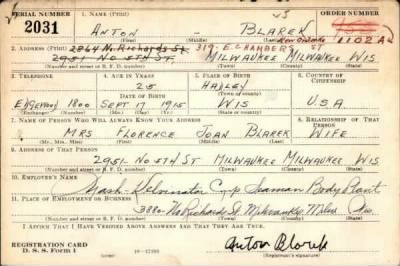 SERIAL NUMBER 1. NAME (Print) ORDER NUMBER
2031 ANTON - BLAREK 1102 A
2. ADDRESS (Print) 2864 N. Richards St. 319 - E. CHAMBERS ST
2951 No 5TH ST. MILWAUKEE MILWAUKEE WIS
(Number and street or R. F. D. number) (Town) (County) (State)
3. TELEPHONE 4. AGE IN YEARS 5. PLACE OF BIRTH 6. COUNTRY OF CITIZENSHIP
25 HADLEY
(Town or county)
EdGEWOOD 1800 SEPT 17 1915 WIS U.S.A
(Exchange) (Number) (Mo.) (Day) (Yr.) (State or country)
7. NAME OF PERSON WHO WILL ALWAYS KNOW YOUR ADDRESS 8. RELATIONSHIP OF THAT PERSON
MRS FLORENCE JOAN BLAREK WIFE
(Mr., Mrs., Miss) (First) (Middle) (Last)
9. ADDRESS OF THAT PERSON
2951 No 5TH ST MILWAUKEE MILWAUKEE WIS
(Number and street or R. F. D. number) (Town) (County) (State)
10. EMPLOYER'S NAME
Nash-Kelvinator Corp Seaman Body Plant
11. PLACE OF EMPLOYMENT OR BUSINESS
3880 No Richards St. Milwaukee Milw. Wis.
(Number and street or R. F. D. number) (Town) (County) (State)
I AFFIRM THAT I HAVE VERIFIED ABOVE ANSWERS AND THAT THEY ARE TRUE.
REGISTRATION CARD
D. S. S. Form 1 Anton Blarek
(Registrant's signature)